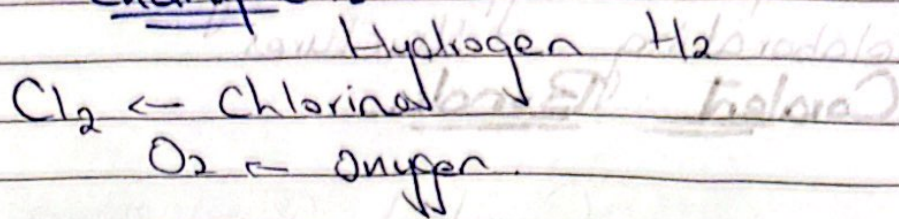 Hydrogen H2
Cl2 ← Chlorine
O2 ← Oxygen.